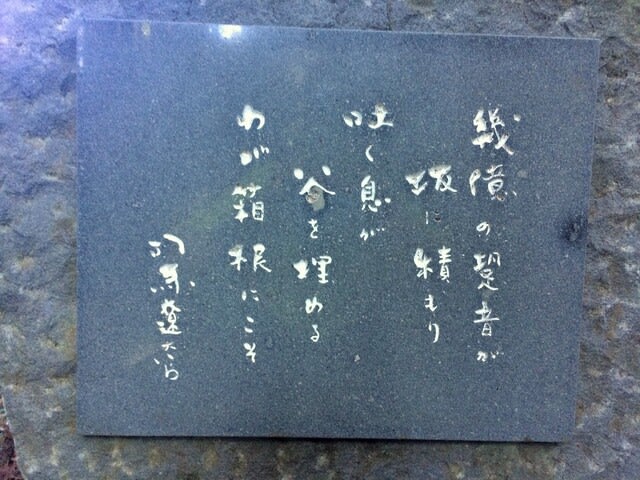 幾億の跫音が
坂に積もり
吐く息が
谷を埋める
わが箱根にこそ
司馬遼太郎